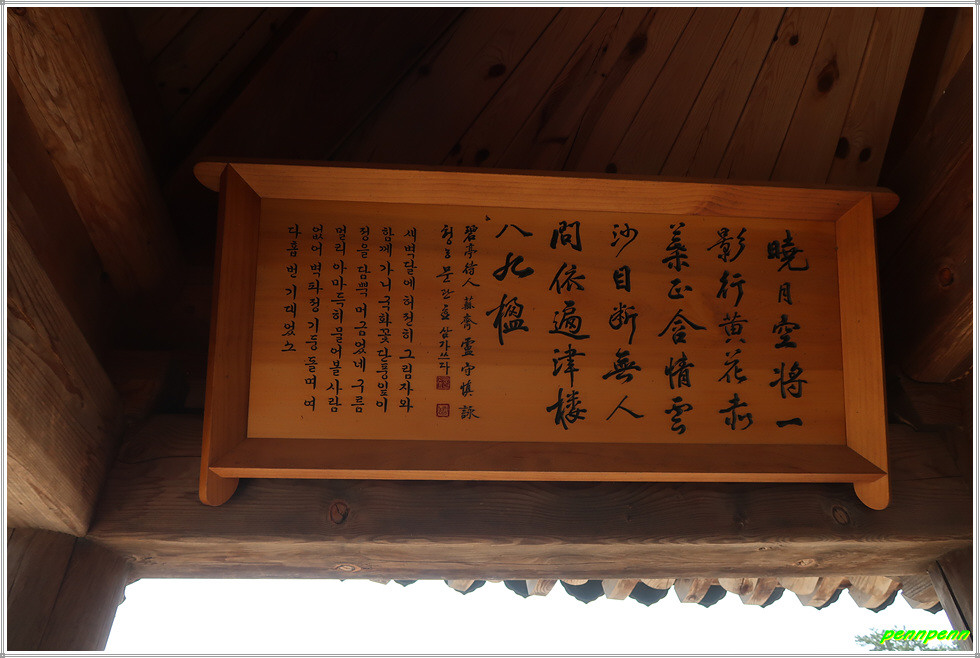 曉月空將一
影行黃花赤
葉正含情雲
沙目斷無人
問依遍津樓
八九楹
碧亭待人 蘇齋 盧守愼 詠
청농 문관효 삼가쓰다
새벽달에 허전히 그림자와
함께 가니 국화꽃단풍잎이
정을 담뿍 머금었네 구름
멀리 아마득히 물어볼 사람
없어 벽파정 기둥 돌며 여
다홉 번 기대었소
pennpenn